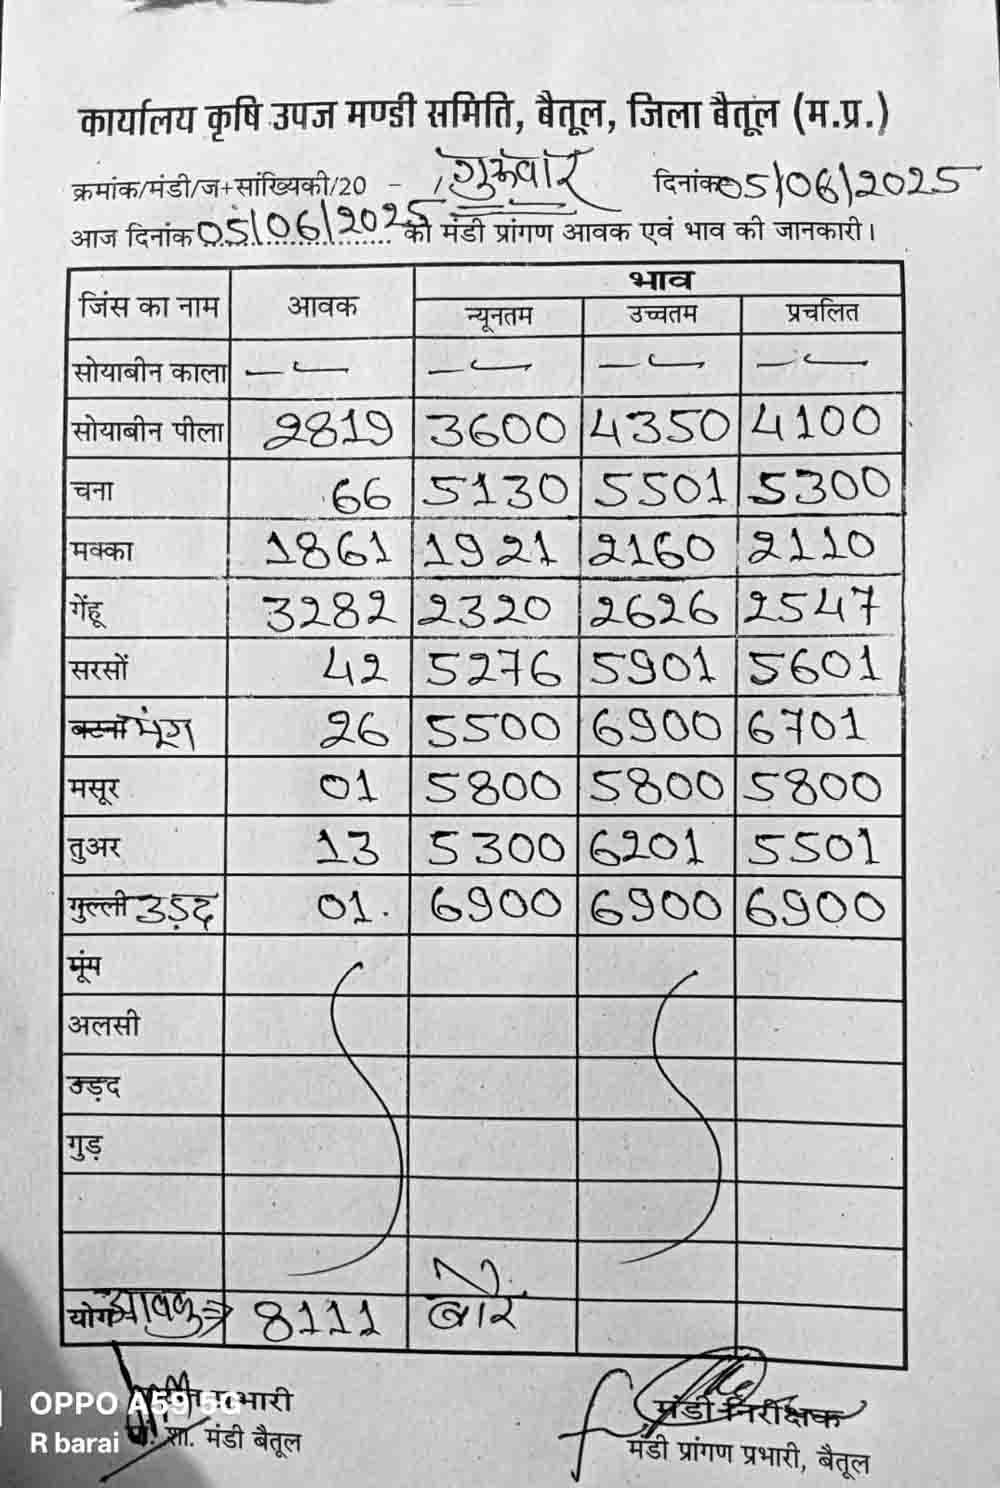 कार्यालय कृषि उपज मण्डी समिति, बैतूल, जिला बैतूल (म.प्र.)
क्रमांक/मंडी/ज+सांख्यिकी/20 - / गुरूवार दिनांक 05/06/2025
आज दिनांक 05/06/2025 को मंडी प्रांगण आवक एवं भाव की जानकारी।
जिंस का नाम आवक भाव
न्यूनतम उच्चतम प्रचलित
सोयाबीन काला — — — —
सोयाबीन पीला 2819 3600 4350 4100
चना 66 5130 5501 5300
मक्का 1861 1921 2160 2110
गेंहू 3282 2320 2626 2547
सरसों 42 5276 5901 5601
बटना मूंग 26 5500 6900 6701
मसूर 01 5800 5800 5800
तुअर 13 5300 6201 5501
गुल्ली उड़द 01. 6900 6900 6900
मूंग
अलसी
उड़द
गुड़
योग आवक⇒ 8111 बोरे
प्रभारी
शा. मंडी बैतूल
मंडी निरीक्षक
मंडी प्रांगण प्रभारी, बैतूल
OPPO A59 5G
R barai